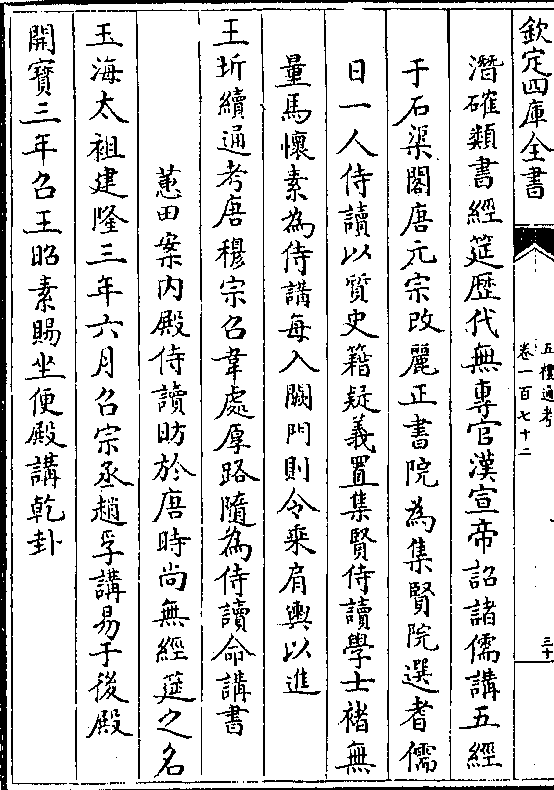 欽定四庫全書
五禮通考
卷一百七十二
三十
潛確類書經筵歷代無專官漢宣帝詔諸儒講五經
于石渠閣唐元宗改麗正書院為集賢院選耆儒
日一人侍讀以質史籍疑義置集賢侍讀學士褚無
量馬懷素為侍講每入閤門則令乘肩輿以進
王圻續通考唐穆宗召韋處厚路隨為侍讀命講書
蕙田案內殿侍讀昉於唐時尚無經筵之名
玉海太祖建隆三年六月召宗丞趙孚講易于後殿
開寶三年召王昭素賜坐便殿講乾卦